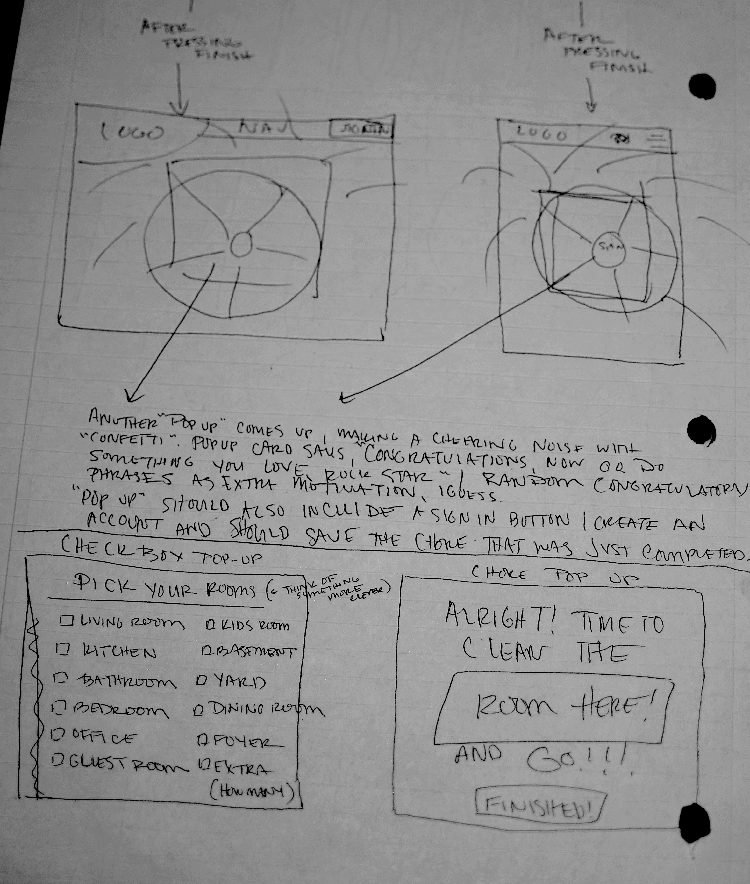 AFTER
PRESSING
FINISH
AFTER
PRESSING
FINISH
LOGO NAV
LOGO
SPIN
ANOTHER "POP UP" COMES UP, MAKING A CHEERING NOISE WITH
"CONFETTI". POPUP CARD SAYS, "CONGRATULATIONS, NOW GO DO
SOMETHING YOU LOVE, ROCK STAR" / RANDOM CONGRATULATORY
PHRASES AS EXTRA MOTIVATION, I GUESS.
"POP UP" SHOULD ALSO INCLUDE A SIGN IN BUTTON / CREATE AN
ACCOUNT AND SHOULD SAVE THE CHORE THAT WAS JUST COMPLETED.
CHECK BOX POP-UP
PICK YOUR ROOMS (THINK OF
SOMETHING
MORE
CLEVER)
LIVING ROOM KIDS ROOM
KITCHEN BASEMENT
BATHROOM YARD
BEDROOM DINING ROOM
OFFICE FOYER
GUEST ROOM EXTRA
(HOW MANY)
CHORE POP UP
ALRIGHT! TIME TO
CLEAN THE
ROOM HERE!
AND GO!!!
FINISHED!